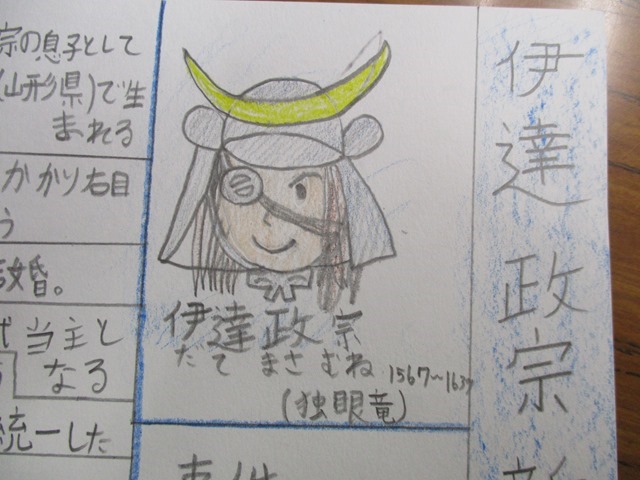 伊達政宗
宗の息子として
(山形県)で生
まれる
かかり右目
う
結婚。
代当主と
なる
統一した
伊達政宗
だて まさむね
1567～1637
(独眼竜)